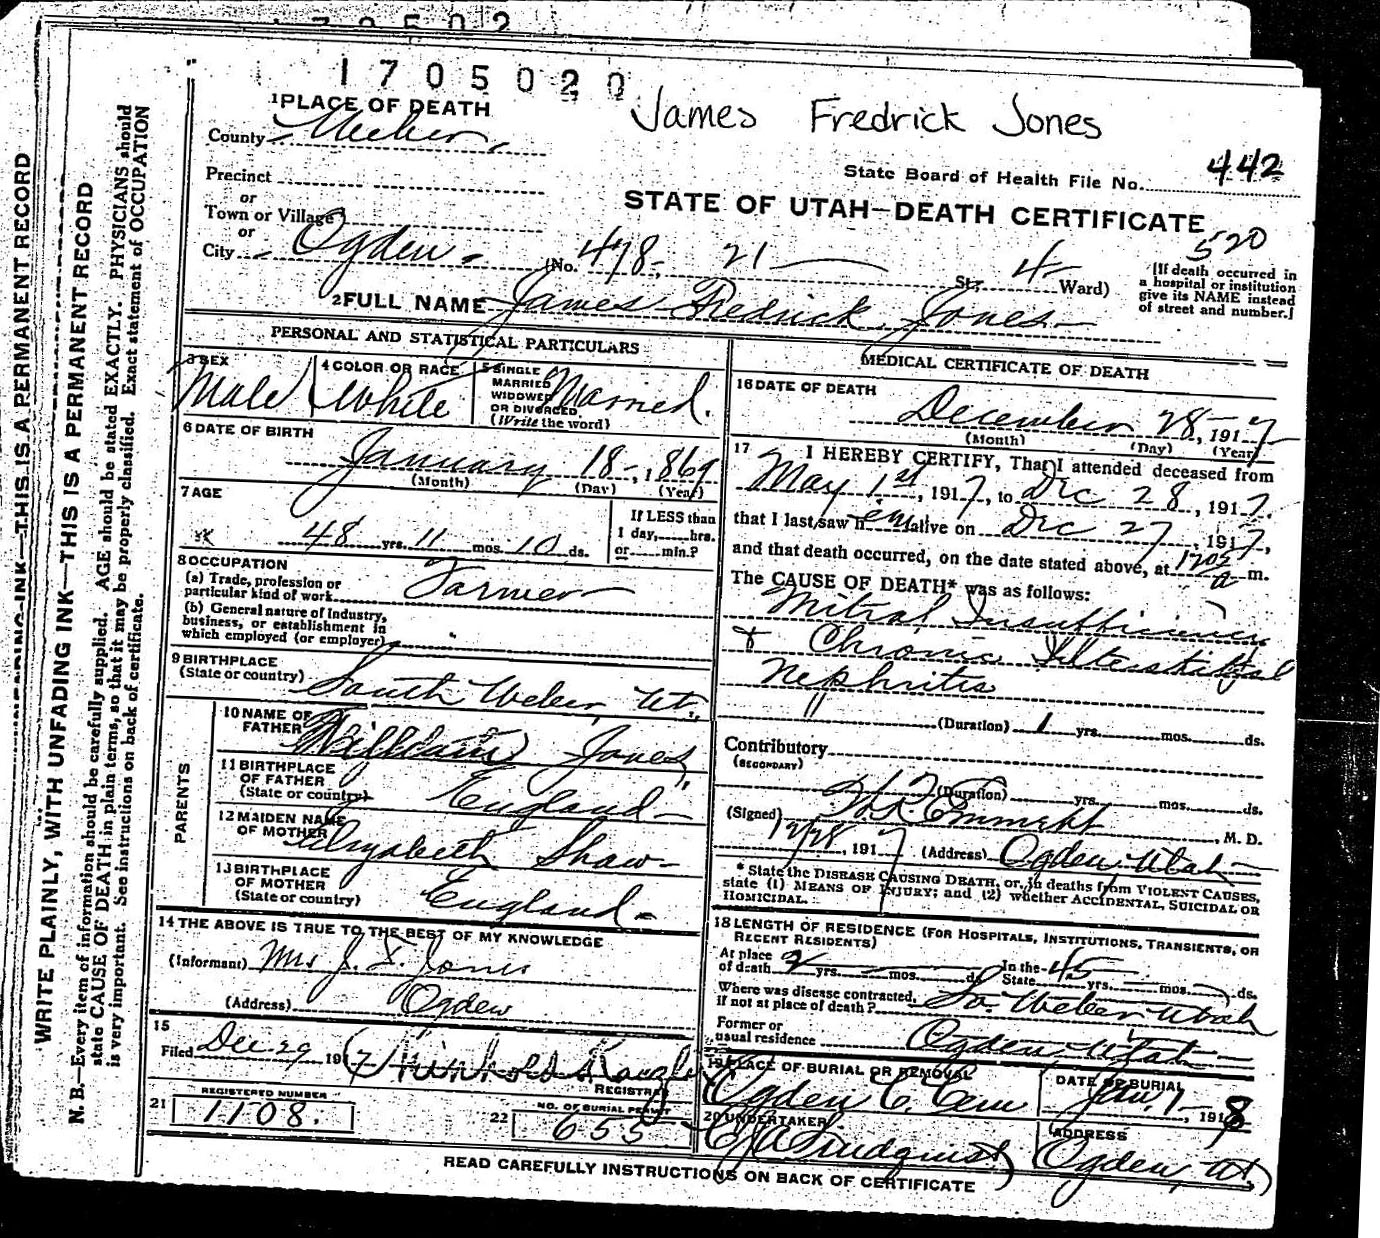 1705020
James Fredrick Jones
1 PLACE OF DEATH
County Weber
State Board of Health File No. 442
Precinct
or
Town or Village
or
City Ogden
STATE OF UTAH—DEATH CERTIFICATE
520
(No. 478. 21 St; 4 Ward)
[If death occurred in a hospital or institution give its NAME instead of street and number.]
2 FULL NAME James Fredrick Jones
PERSONAL AND STATISTICAL PARTICULARS
3 SEX
Male
4 COLOR OR RACE
White
5 SINGLE
MARRIED
WIDOWED
OR DIVORCED
(Write the word)
Married.
6 DATE OF BIRTH
January 18, 1869
(Month) (Day) (Year)
7 AGE
48 yrs. 11 mos. 10 ds.
If LESS than
1 day, hrs.
or min.?
8 OCCUPATION
(a) Trade, profession or
particular kind of work
Farmer
(b) General nature of industry,
business, or establishment in
which employed (or employer)
9 BIRTHPLACE
(State or country)
South Weber, Ut.
PARENTS
10 NAME OF
FATHER
William Jones
11 BIRTHPLACE
OF FATHER
(State or country)
England
12 MAIDEN NAME
OF MOTHER
Elizabeth Shaw
13 BIRTHPLACE
OF MOTHER
(State or country)
England
14 THE ABOVE IS TRUE TO THE BEST OF MY KNOWLEDGE
(Informant) Mrs J. F. Jones
(Address) Ogden
15
Filed Dec 29 1917
REGISTRAR
REGISTERED NUMBER
21 1108.
NO. OF BURIAL PERMIT
22 655
MEDICAL CERTIFICATE OF DEATH
16 DATE OF DEATH
December 28, 1917
(Month) (Day) (Year)
17 I HEREBY CERTIFY, That I attended deceased from
May 1st, 1917, to Dec 28, 1917.
that I last saw h em alive on Dec 27, 1917,
and that death occurred, on the date stated above, at 1202 a m.
The CAUSE OF DEATH* was as follows:
Mitral Insufficiency
& Chronic Interstitial
Nephritis
(Duration) 1 yrs. mos. ds.
Contributory
(SECONDARY)
(Duration) yrs. mos. ds.
(Signed) , M. D.
12/28, 1917 (Address) Ogden, Utah
* State the DISEASE CAUSING DEATH, or, in deaths from VIOLENT CAUSES,
state (1) MEANS OF INJURY; and (2) whether ACCIDENTAL, SUICIDAL OR
HOMICIDAL.
18 LENGTH OF RESIDENCE (FOR HOSPITALS, INSTITUTIONS, TRANSIENTS, OR
RECENT RESIDENTS)
At place
of death 2 yrs. mos. ds. In the State 45 yrs. mos. ds.
Where was disease contracted,
if not at place of death? So. Weber Utah
Former or
usual residence Ogden, Utah
19 PLACE OF BURIAL OR REMOVAL
Ogden C. Cem
DATE OF BURIAL
Jan. 1, 1918
20 UNDERTAKER
Lindquist
ADDRESS
Ogden, Ut.
READ CAREFULLY INSTRUCTIONS ON BACK OF CERTIFICATE
WRITE PLAINLY, WITH UNFADING INK—THIS IS A PERMANENT RECORD
N. B.—Every item of information should be carefully supplied. AGE should be stated EXACTLY. PHYSICIANS should
state CAUSE OF DEATH in plain terms, so that it may be properly classified. Exact statement of OCCUPATION
is very important. See instructions on back of certificate.